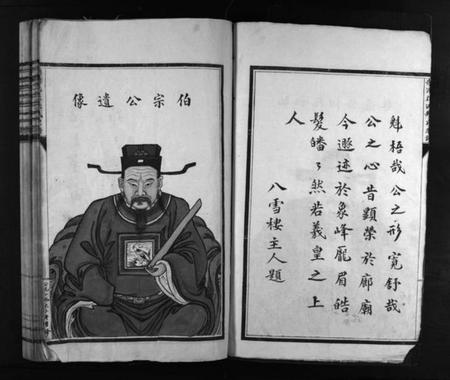 伯宗公遺像
魁梧哉公之形寬舒哉
公之心昔顯榮於廊廟
今遯迹於象峰龐眉皓
髮皤々然若羲皇之上
人
八雪樓主人題